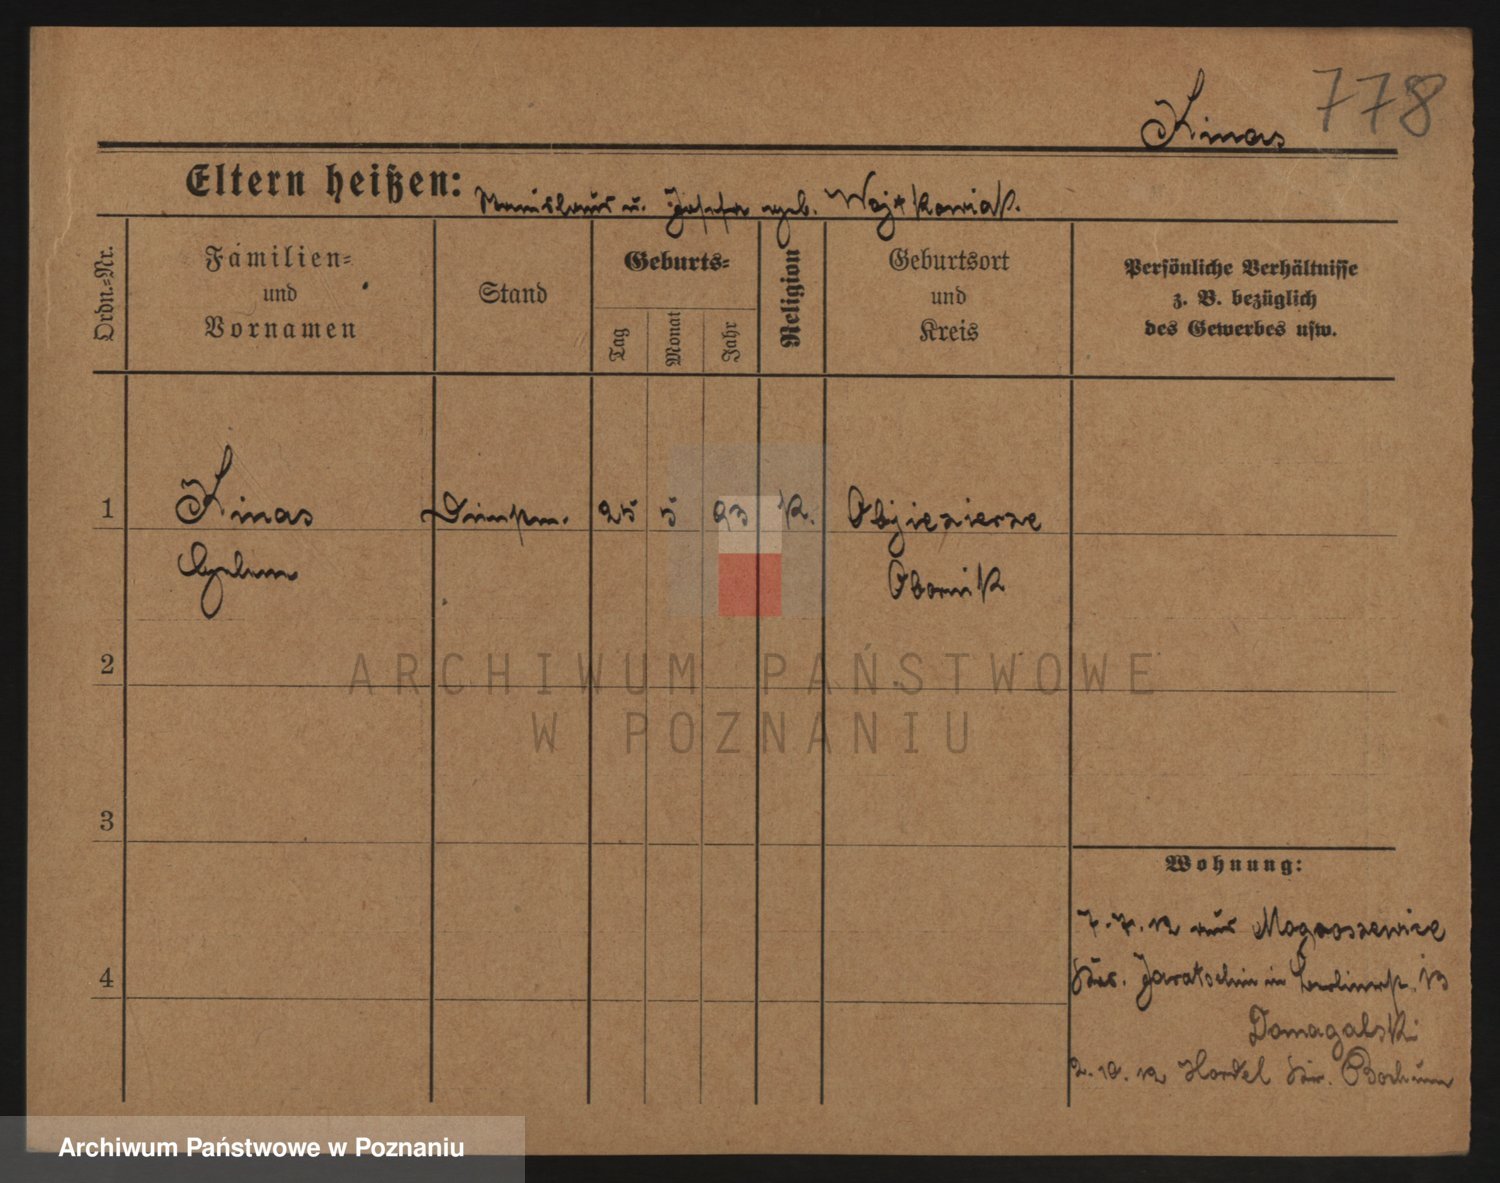 778
Kinas
Eltern heißen: Stanislaus u. Josefa geb. Wojtkowiak.
Ordn.-Nr.
Familien-
und
Vornamen
Stand
Geburts-
Tag
Monat
Jahr
Religion
Geburtsort
und
Kreis
Persönliche Verhältnisse
z. B. bezüglich
des Gewerbes usw.
1 Kinas 25 5 93 k. Objezierze
Obornik
2
3
4
Wohnung:
7.7.12 aus
Kr. Jarotschin in 13
Domagalski
2.10.12 Hordel Kr. Bochum
ARCHIWUM PAŃSTWOWE
W POZNANIU
Archiwum Państwowe w Poznaniu